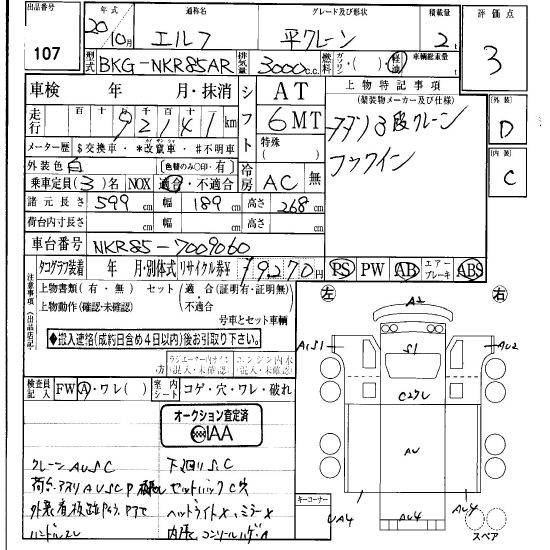 出品番号 107
年式 20年10月 通称名 エルフ グレード及び形状 平クレーン 積載量 2t 評価点 3
型式 BKG-NKR85AR 排気量 3000c.c. 燃料 ガソリン・( )軽油 車輌総重量 t
車検 年 月・抹消 シフト AT 6MT 特殊( )
上物特記事項
(架装物メーカー及び仕様)
タダノ3段クレーン
フックイン
外装 D
内装 C
走行 十 万 千 百 十 92141km
メーター歴 $交換車・*改竄車・#不明車
外装色 白 (色替のみ○印・有) 冷房 AC 無
乗車定員(3)名 NOX 適合・不適合
諸元長さ 599cm 幅 189cm 高さ 268cm
荷台内寸長さ cm 幅 cm 高さ cm
車台番号 NKR85-7009060
タコグラフ装着 年 月・別体式 リサイクル券¥ 19270円 PS PW AB エアーブレーキ ABS
注意事項(出品店記入)
上物書類(有・無)セット(適合(証明有・証明無)
上物動作(確認・未確認) ・不適合)
号車とセット車輌
◆搬入遅絡(成約日含め4日以内)後お引取り下さい。
ラジエーター内サイン(混入・未確認) エンジン内水(混入・未確認)
検査員記入 FW A・ワレ( ) 室内シート コゲ・穴・ワレ・破れ
オークション査定済
IAA
クレーンAUSC 下回りSC
セットバックC穴
ヘッドライト× ミラー×
ハンドルスレ
キーコーナー
左 右
A2
A1S1 S1 AU2
C2クレ
AU
UA4 AU4 AU4
スペア